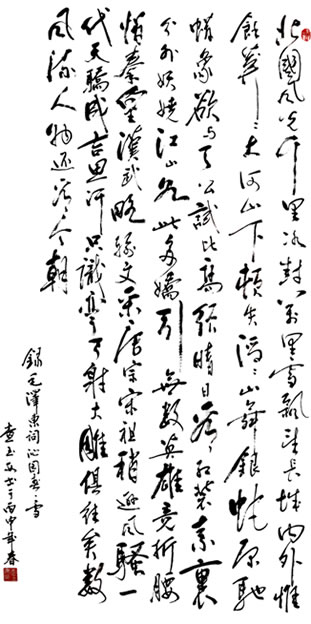 北國風光千里冰封萬里雪飄望長城內外惟
餘莽〻大河上下頓失滔〻山舞銀蛇原馳
蠟象欲與天公試比高須晴日看紅裝素裹
分外妖嬈江山如此多嬌引無數英雄競折腰
惜秦皇漢武略輸文采唐宗宋祖稍遜風騷一
代天驕成吉思汗只識彎弓射大雕俱往矣數
風流人物還看今朝
錄毛澤東詞沁園春雪
查玉書於丙申春